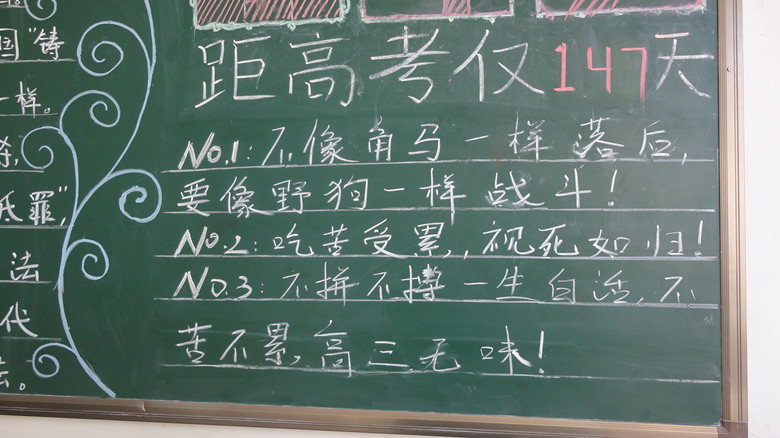 国“铸
一样。
氏罪”,
法
代
法。
距高考仅147天
No.1:不像角马一样落后,
要像野狗一样战斗!
No.2:吃苦受累,,视死如归!
No.3:不拼不搏一生白活,不
苦不累,高三无味!